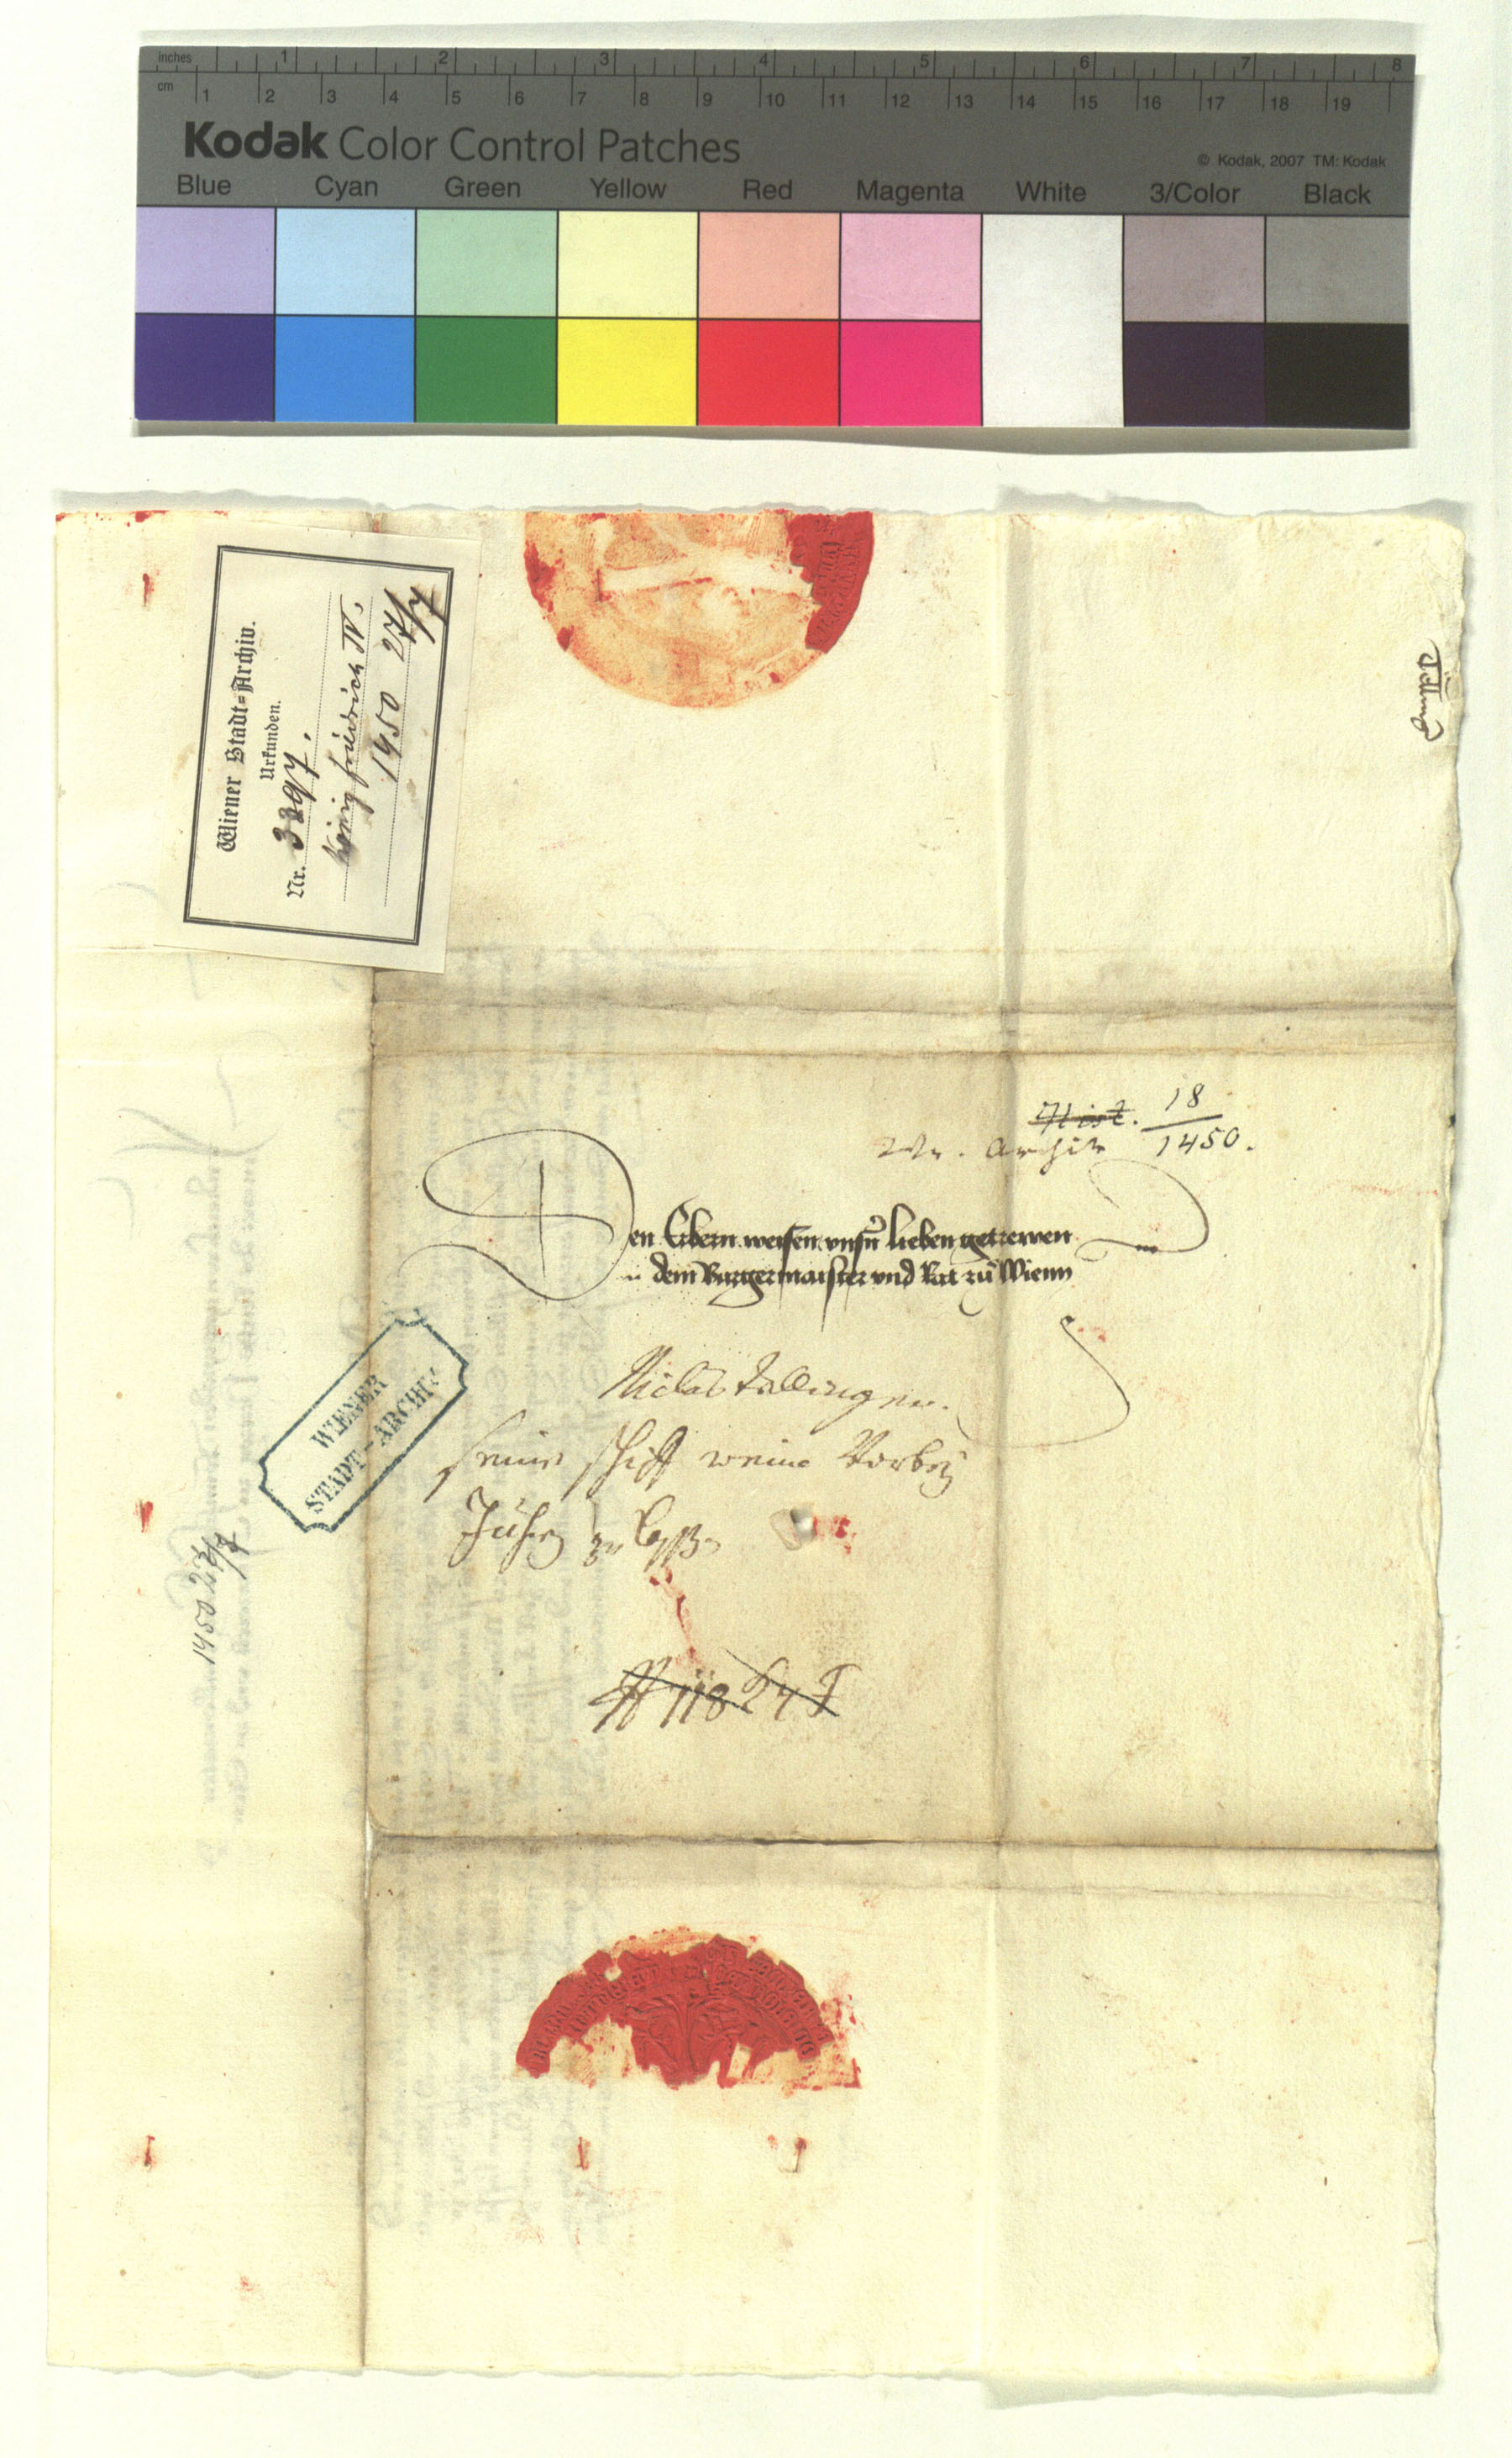 inches 1 2 3 4 5 6 7 8
cm 1 2 3 4 5 6 7 8 9 10 11 12 13 14 15 16 17 18 19
Kodak Color Control Patches
© Kodak, 2007 TM: Kodak
Blue Cyan Green Yellow Red Magenta White 3/Color Black
Wiener Stadt-Archiv.
Urkunden.
Nr. 3397.
König Friedrich IV.
1450 27/7
Hist. 18
Wr. Archiv 1450.
Den Erbern weisen vnsñ lieben getrewen
dem Burgermaister vnd Rat zu Wienn
WIENER
STADT-ARCHIV
Niclas
seine schiff weine Vorbey
zu
1450 27/7